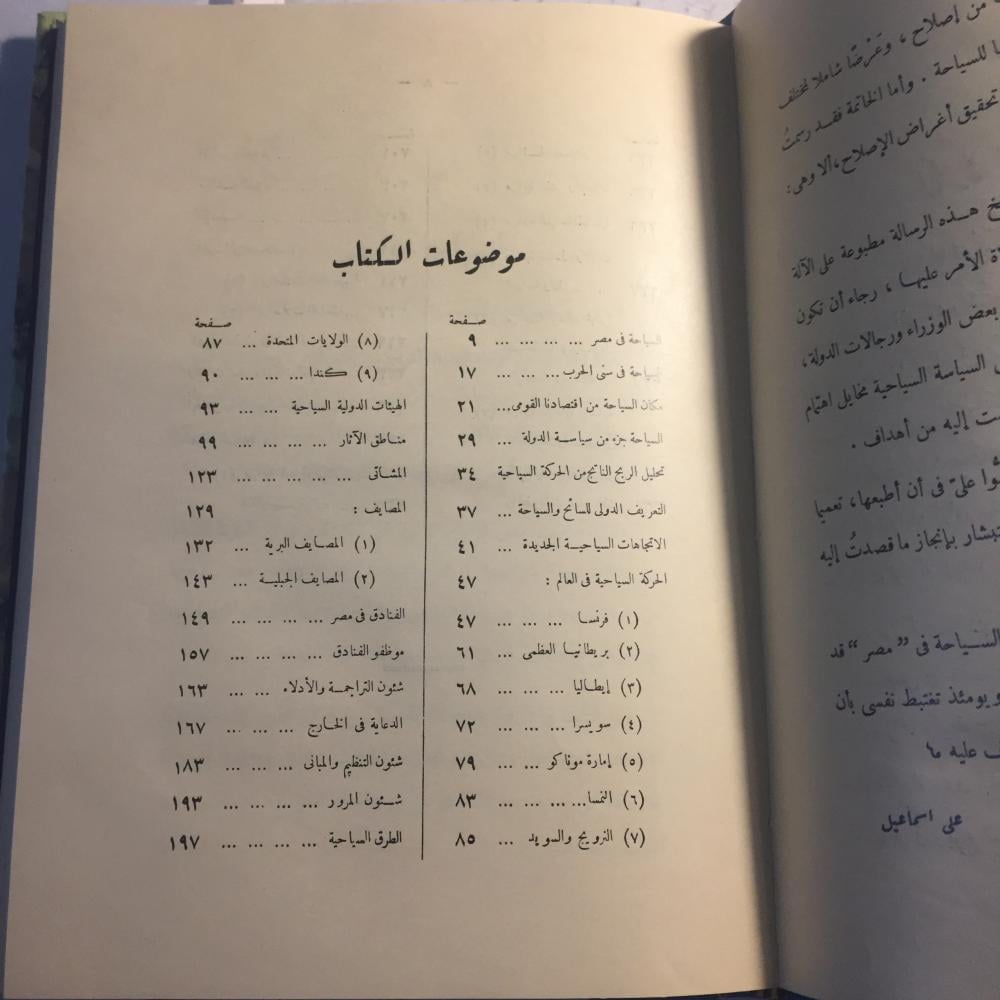 من إصلاح ، وعَرْضًا شاملا لمختلف
للسياحة . وأما الخاتمة فقد رسمتُ
تحقيق أغراض الإصلاح، ألا وهى :
هــذه الرسالة مطبوعة على الآلة
الأمر عليهــا ، رجاء أن تكون
بعض الوزراء ورجالات الدولة ،
السياسة السياحية مخايل اهتمام
إليه من أهداف .
علىّ فى أن أطبعها، تعميما
بإنجاز ما قصدتُ إليه
السـياحة فى "مصر" قد
ويومئذ تغتبط نفسى بأن
عليه ما
على اسماعيل
— ٨ —
موضوعات الكتاب
صفحة
السياحة فى مصر ... ... ... ... ٩
السياحة فى سنى الحرب ... ... ... ١٧
مكان السياحة من اقتصادنا القومى ... ٢١
السياحة جزء من سياسة الدولة ... ٢٩
تحليل الربح الناتج من الحركة السياحية ٣٤
التعريف الدولى للسائح والسياحة ... ٣٧
الاتجاهات السياحية الجديدة ... ٤١
الحركة السياحية فى العالم : ٤٧
(١) فرنسا ... ... ... ٤٧
(٢) بريطانيا العظمى ... ٦١
(٣) إيطاليا ... ... ... ٦٨
(٤) سويسرا ... ... ... ٧٢
(٥) إمارة موناكو ... ... ٧٩
(٦) النمسا ... ... ... ... ٨٣
(٧) النرويج والسويد ... ٨٥
صفحة
(٨) الولايات المتحدة ... ٨٧
(٩) كندا ... ... ... ٩٠
الهيئات الدولية السياحية ... ... ٩٣
مناطق الآثار ... ... ... ... ٩٩
المشاتى ... ... ... ... ... ١٢٣
المصايف : ١٢٩
(١) المصايف البرية ... ١٣٢
(٢) المصايف الجبلية ... ١٤٣
الفنادق فى مصر ... ... ... ... ١٤٩
موظفو الفنادق ... ... ... ... ١٥٧
شئون التراجمة والأدلاء ... ... ١٦٣
الدعاية فى الخارج ... ... ... ١٦٧
شئون التنظيم والمبانى ... ... ... ١٨٣
شئون المرور ... ... ... ... ١٩٣
الطرق السياحية ... ... ... ... ١٩٧